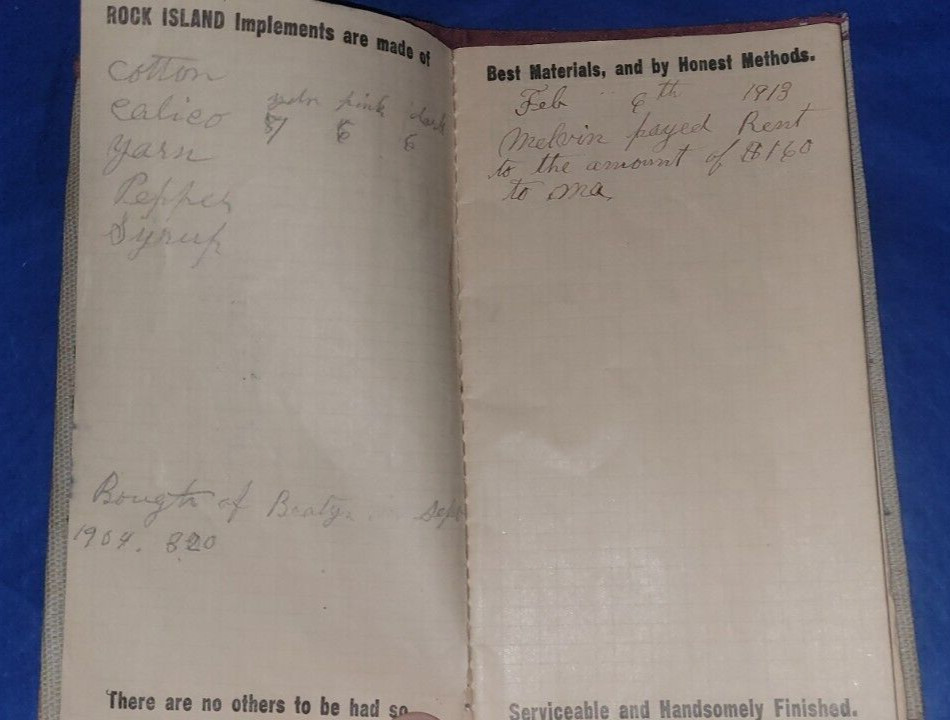 ROCK ISLAND Implements are made of
cotton
calico pink dark
7 6 6
Yarn
Pepper
Syrup
Bougth of Sept
1904. 820
There are no others to be had so
Best Materials, and by Honest Methods.
Feb 6th 1913
Melvin payed Rent
to the amount of $160
to ma.
Serviceable and Handsomely Finished.